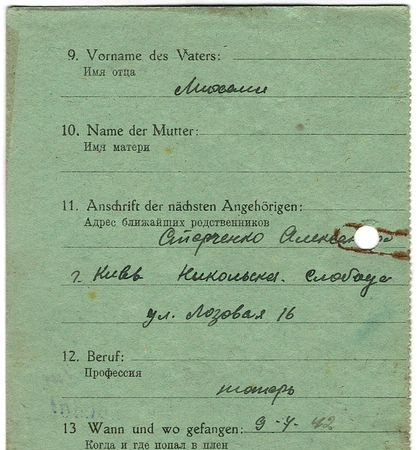 9. Vorname des Vaters:
Имя отца
Михаил
10. Name der Mutter:
Имя матери
11. Anschrift der nächsten Angehörigen:
Адрес ближайших родственников
Старченко
г. Киев Никольска. слобода
ул. Лозовая 16
12. Beruf:
Профессия
токарь
13 Wann und wo gefangen: 9-V-42
Когда и где попал в плен